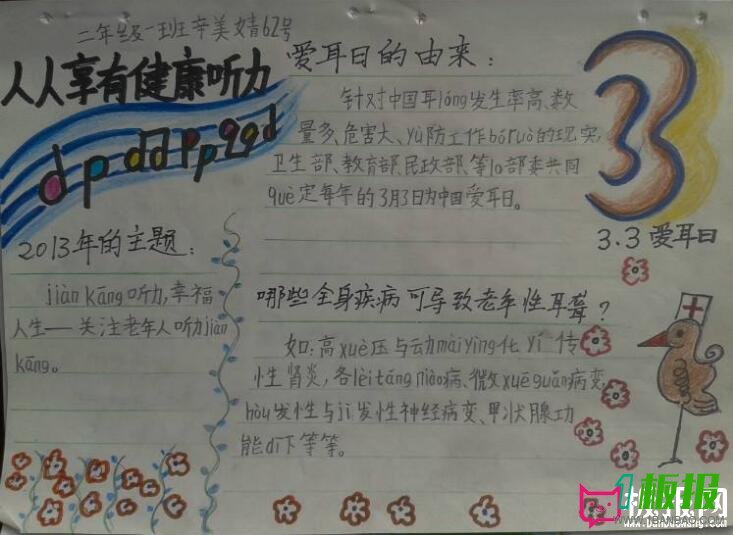 二年级一班辛美婧62号
人人享有健康听力
2013年的主题：
jiàn kāng听力,幸福
人生——关注老年人听力jiàn
kāng。
爱耳日的由来：
针对中国耳lóng发生率高、数
量多、危害大、yù防工作bóruò的现实,
卫生部、教育部、民政部、等10部委共同
què定每年的3月3日为中国爱耳日。
哪些全身疾病可导致老年性耳聋？
如:高xuè压与动màiyìng化 yí传
性肾炎,各lèitángniào病、微xuèguǎn病变,
hòu发性与jì发性神经病变、甲状腺功
能dī下等等。
3
3.3爱耳日
1板报